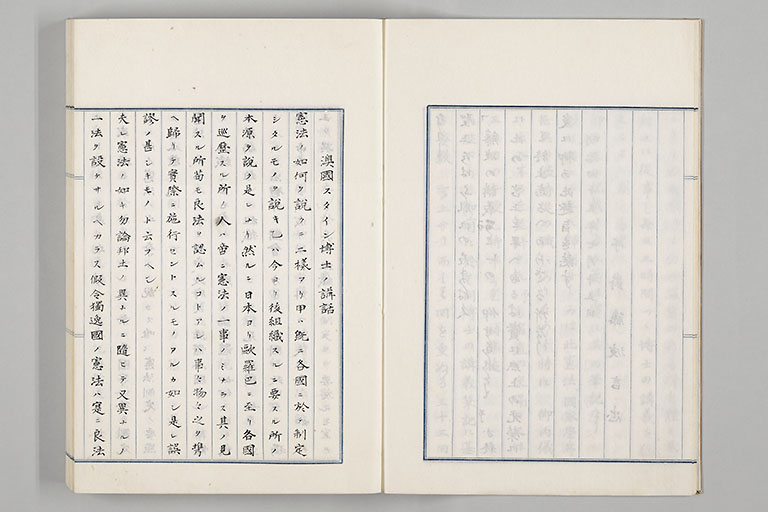 澳國スタイン博士ノ講話
憲法ノ如何ヲ説クニ二様アリ甲ハ既ニ各國ニ於テ制定
シタルモノヲ説キ乙ハ今ヨリ後組織スルニ要スル所ノ
本源ヲ説ク是レナリ然ルニ日本ヨリ歐羅巴ニ至リ各國
ヲ巡歴スル所ノ人ハ啻ニ憲法ノ一事ノミナラス其ノ見
聞スル所苟モ良法ヲ認ムルコトアレハ事々物々之ヲ携
ヘ歸リテ實際ニ施行セントスルモノアルカ如シ是レ誤
謬ノ甚シキモノト云フヘシ
夫レ憲法ノ如キ勿論邦土ノ異ナルニ隨ヒテ又異ナルノ
一法ヲ設ケサルヘカラス假令獨逸國ノ憲法ハ寔ニ良法